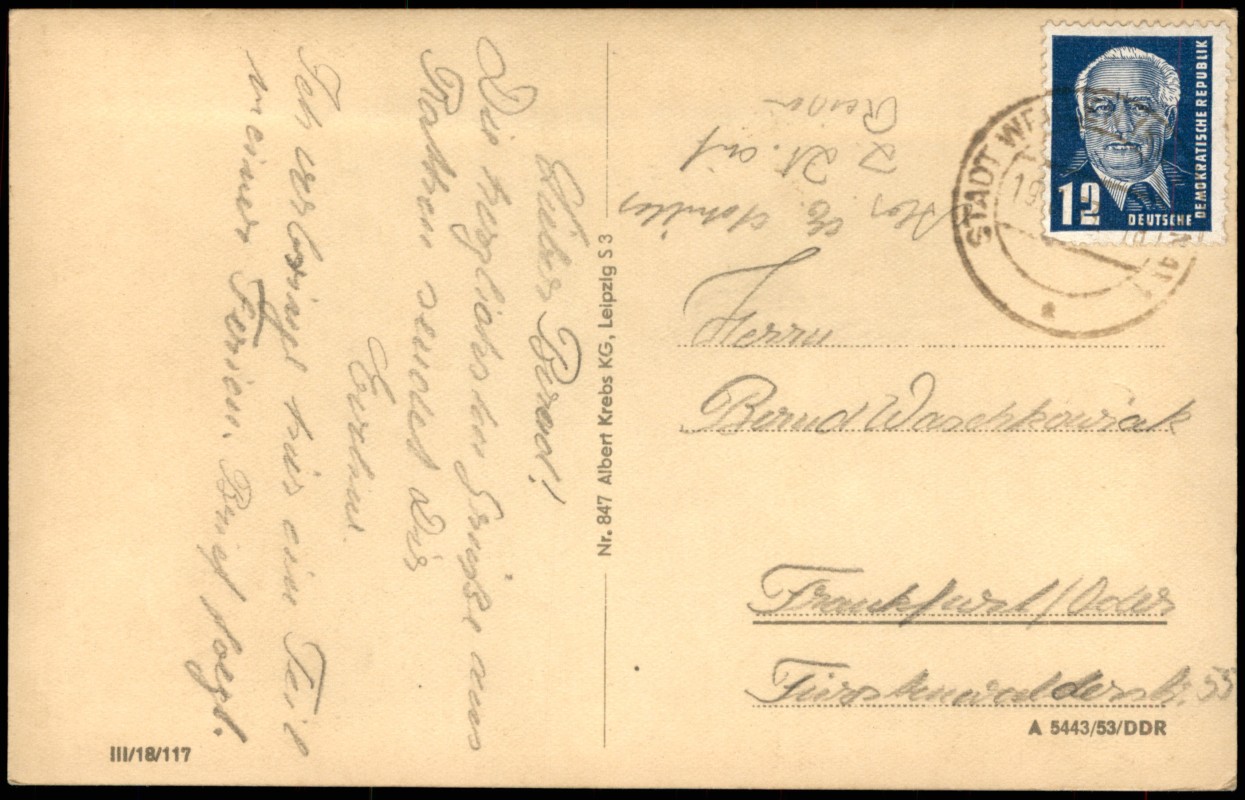 Lieber Bernd!
Die herzlichsten Grüße aus
Rathen sendet Dir
Eveline.
Ich verbringe hier ein Teil
meiner Ferien. Brief folgt.
Nr. 847 Albert Krebs KG, Leipzig S 3
III/18/117
Abs. E.
z. Zt. auf
Reisen
STADT WEHLEN
12
DEUTSCHE
DEMOKRATISCHE REPUBLIK
Herrn
Bernd Waschkowiak
Frankfurt/Oder
Fürstenwalderstr. 55
A 5443/53/DDR